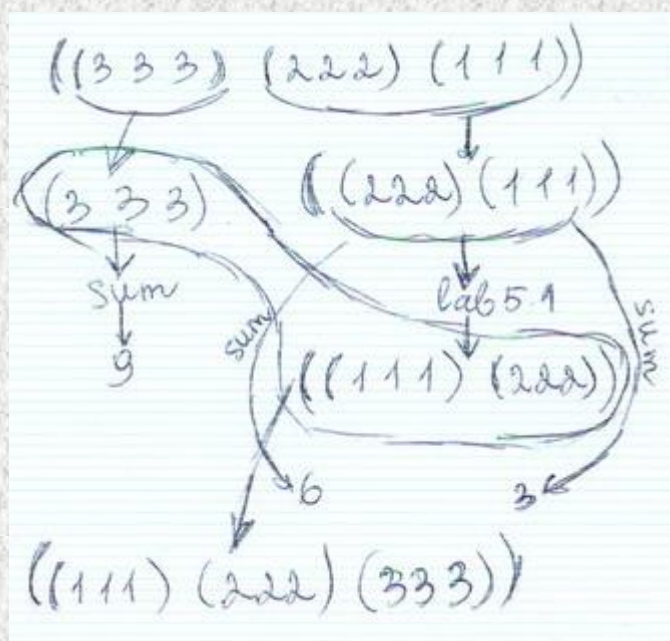 ((3 3 3) (2 2 2) (1 1 1))
(3 3 3) ((2 2 2) (1 1 1))
sum sum lab5.1 sum
9 ((1 1 1) (2 2 2))
6 3
((1 1 1) (2 2 2) (3 3 3))